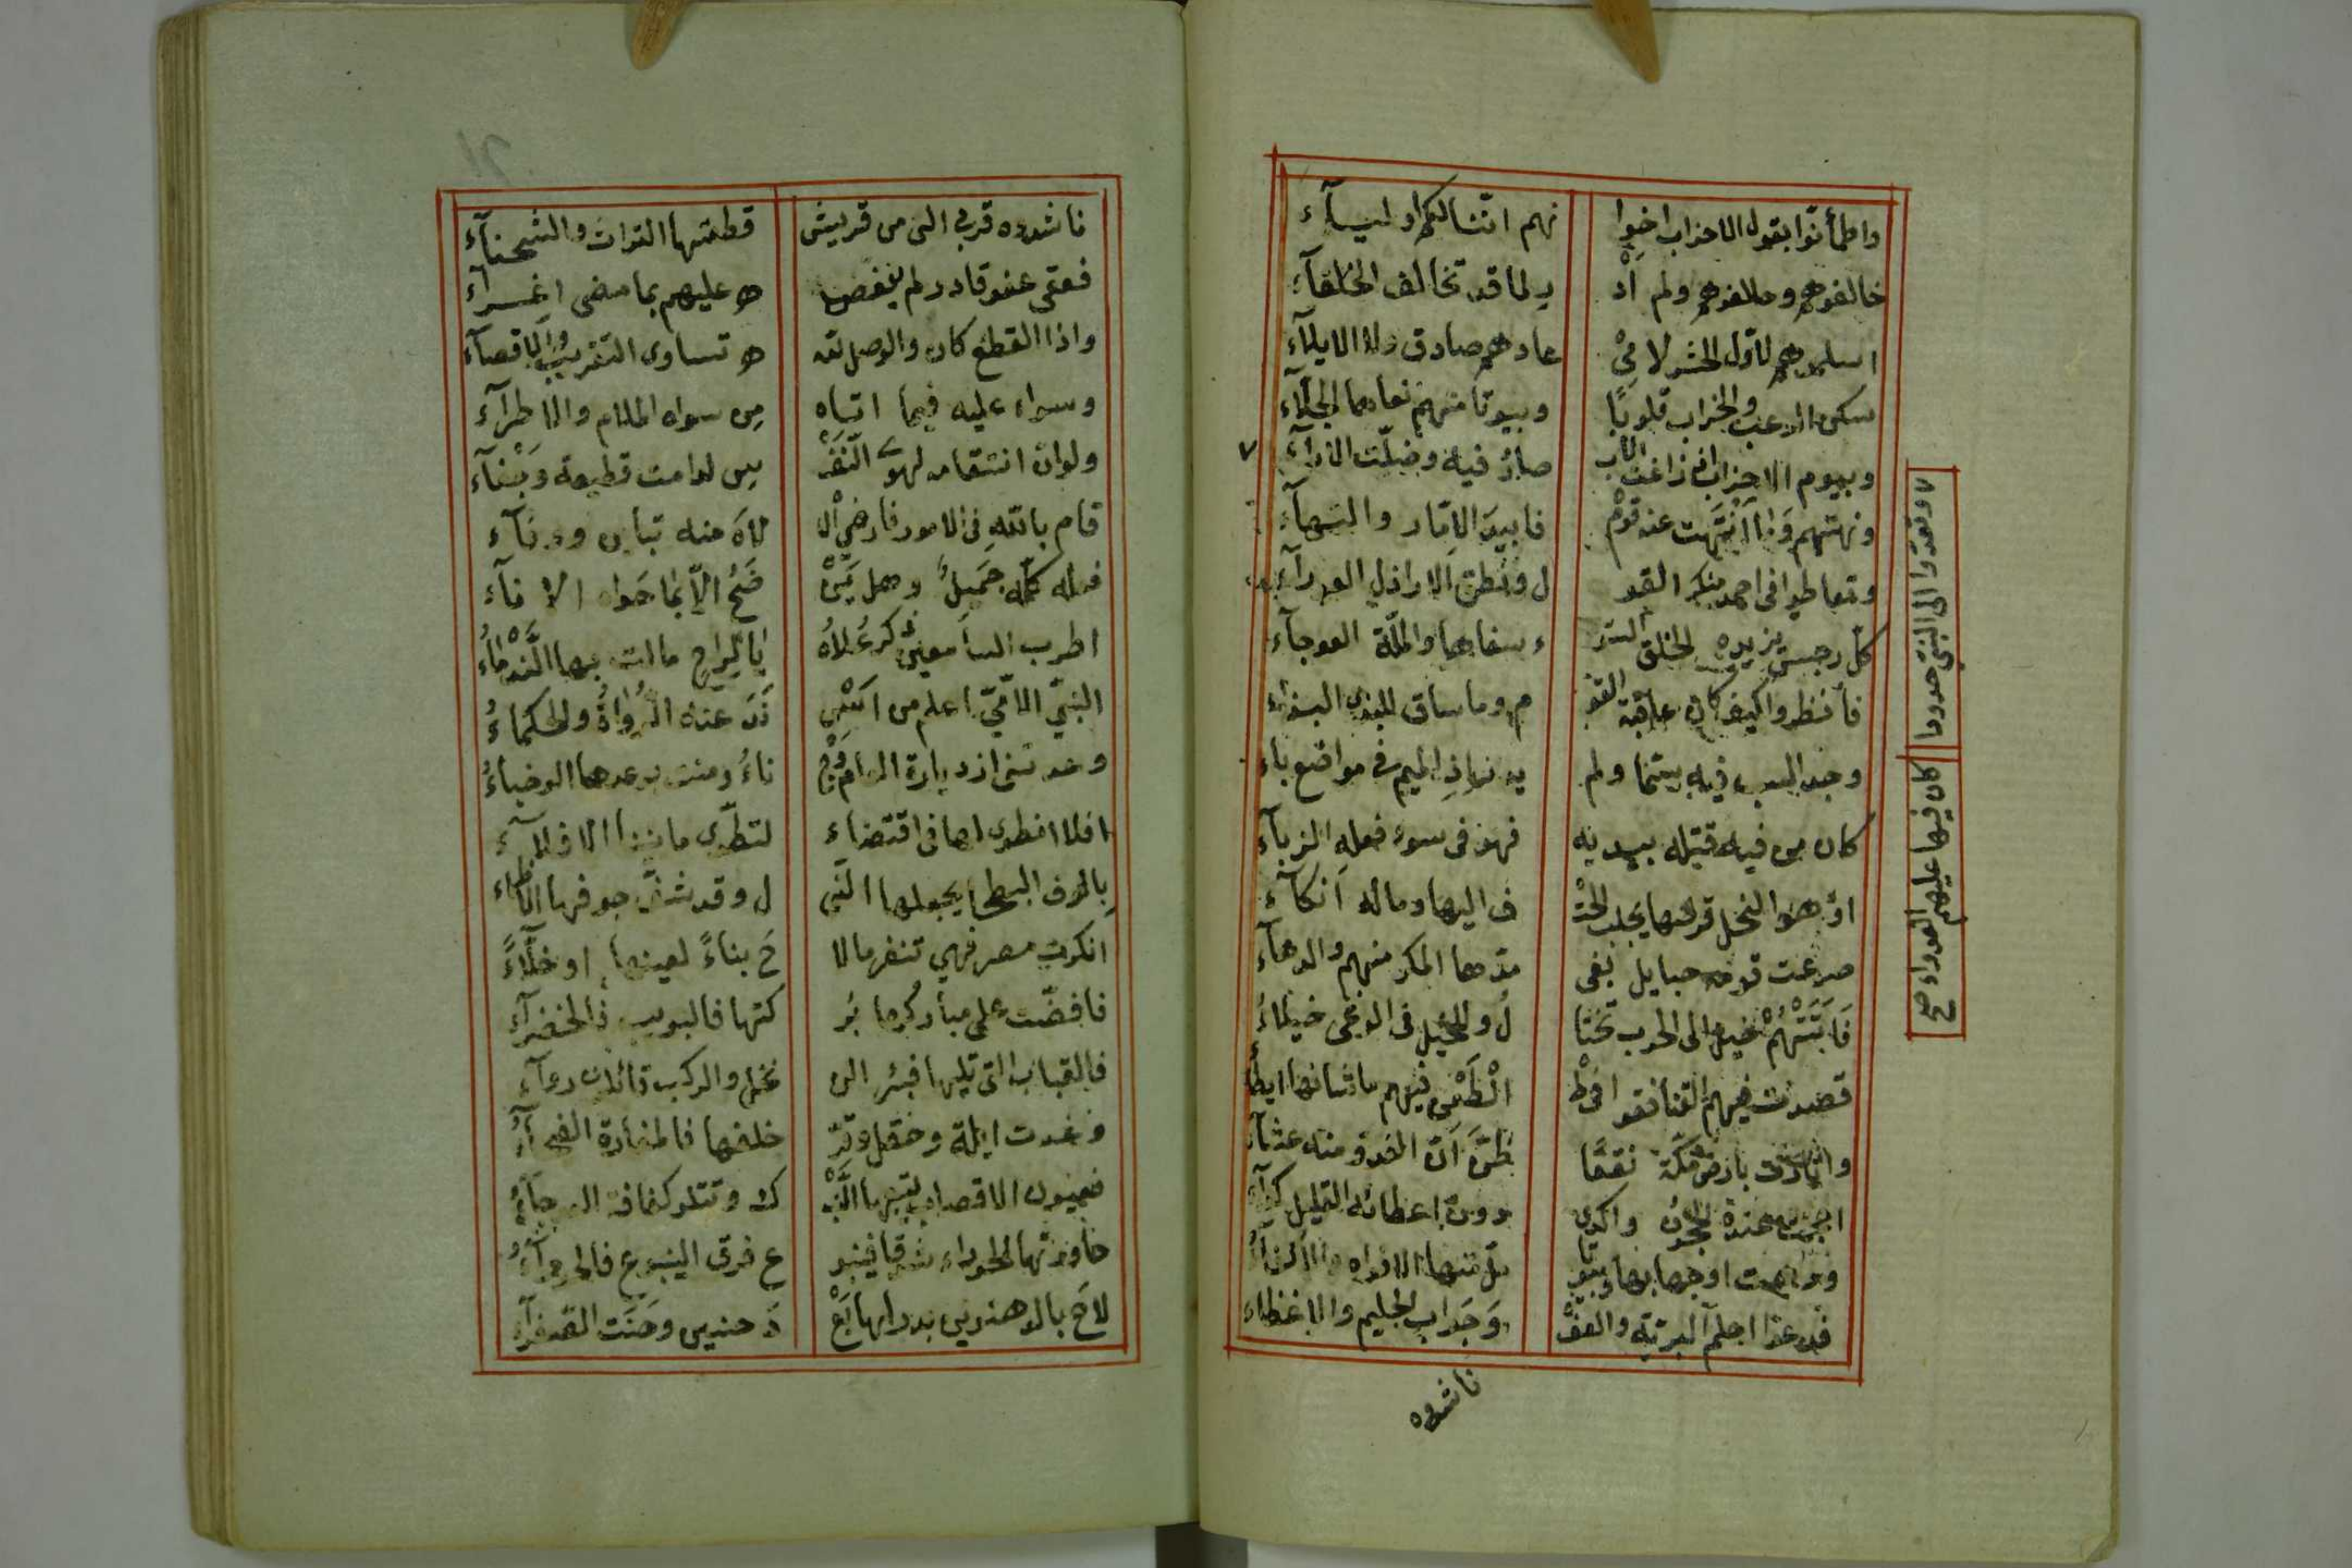 واطمأنّوا بقول الاحزاب اخوا نهم انّنا لكم اوليآء
خالفوهم وحالفوهم ولم اد ر لما قد تخالف الحلفآء
اسلموهم لاوّل الحشر لا مي عادهم صادق ولا الايلآء
سكن الرعب والخراب قلوبًا وبيوتا منهم نعاها الجلآء
وبيوم الاحزاب اذ زاغت الاب صارُ فيه وضلّت الارآء
ونهتهم وما انتهت عنه قومٌ فابيدَ الامّار والنهآء
وتعاطوا في احمد منكر القو ل ونطق الاراذل العورآء
كلّ رجس يزيده الخلق السو ء سفاها والملّة العوجآء
فانظروا كيف كان عاقبة القو م وما ساق للبذى البذاء
وجد السب فيه سمّا ولم يد ر اذ الميم في مواضع باء
كان من فيه قتله بيديه فهو في سوء فعله الزبآء
او هو النحل قرصها يجلب الحت ف اليها وماله انكآء
صرعت قومه حبايل بغي مدّها المكر منهم والدهآء
فَاَتَتْهُمْ خيل الى الحرب تختا ل وللخيل في الوغى خيلاءُ
قصدت فيهم القنا فقوافي الطعن فيهم ما شانها ايطا
واثارت بارض مكّة نقعًا ظنّ انّ الغدو منه عشآء
احجمت عنده الحجون واكدى دون اعطائه القليل كدآء
ودهت اوجها بها وبيوتا ملّ منها الاقواء والاكفآء
فدعوا احلم البريّة والعفو وجواب الحليم والاغضاء
ناشدوه
وتعدّوا الى النبي حدودا
كان فيها عليهم العدواء صح
ناشدوه قربى التي من قريش قطعتها الترات والشحنآء
فعفى عفو قادر لم ينغص ه عليهم بما مضى اغرآء
واذا القطع كان والوصل لله ه تساوى التقريب والاقصآء
وسواء عليه فيما اتاه من سواه الملام والاطرآء
ولو انّ انتقامه لهوى النف س لدامت قطيعة وجفآء
قام بالله في الامور فارضى ال لاه منه تباين ووفآء
فعله كلّه جميل وهل ين ضح الا بما حواه الانآء
اطرب السامعين ذكر علاه يا لراح مالت بها الندماءُ
النبيّ الامّيّ اعلم من اسن د عنه الرواة والحكماءُ
وعدتني ازدياره العام وج ناءُ ومنت بوعدها الوجناءُ
افلا انطوى لها في اقتضاء لتطوّى ما بيننا الافلآء
بالوف البطحا يجفلها الني ل وقد شفّ جوفها الاظماء
انكرت مصر فهي تنفر ما لا ح بناءً لعينها او خلآءً
فافضّت على مباركها بر كتها فالبويب فالخضرآء
فالقباب التي تليها فبئر ال نخل والركب قائلون روآء
وغدت ايلة وحقل وقرّ خلفها فالمغارة الفيحآءُ
فعيون الاقصاب يتبعها النب ك وتتلو كفافة العوجآءُ
حاورتها الحوراء شوقا فينبو ع فرق الينبوع فالحورآءُ
لاحَ بالدهنوين بدر لها بع د حنين وحنّت الصفرآء